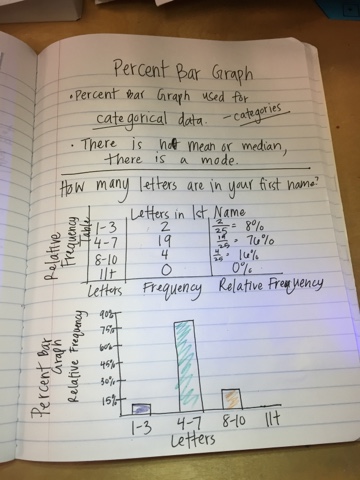 Percent Bar Graph
• Percent Bar Graph used for
categorical data. - categories
• There is not mean or median,
there is a mode.
How many letters are in your first name?
Relative Frequency Table
Letters in 1st Name
1-3 2 2/25 = 8%
4-7 19 19/25 = 76%
8-10 4 4/25 = 16%
11+ 0 0%
Letters Frequency Relative Frequency
Percent Bar Graph
Relative Frequency
90%
75%
60%
45%
30%
15%
1-3 4-7 8-10 11+
Letters